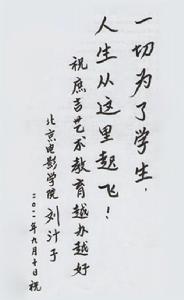 一切为了学生，
人生从这里起飞！
祝庶吉艺术教育越办越好
北京电影学院 刘汁子
二〇二一年九月十日 祝